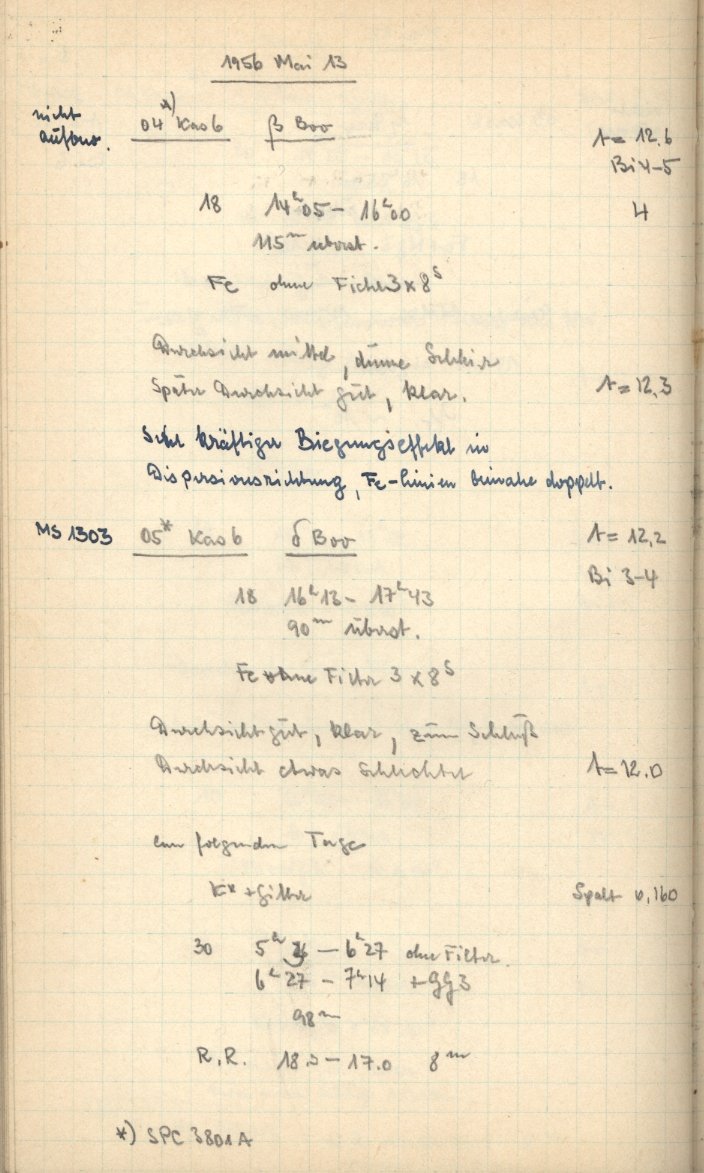 1956 Mai 13
nicht
aufbew.
04*) Kas 6 β Boo t = 12,6
Bi 4-5
18 14ʰ05 – 16ʰ00 4
115ᵐ überst.
Fe ohne Filter 3 x 8ˢ
Durchsicht mittel, dünne Schleier
Später Durchsicht gut, klar. t = 12,3
Sehr kräftiger Biegungseffekt in
Dispersionsrichtung, Fe-Linien beinahe doppelt.
MS 1303 05* Kas 6 δ Boo t = 12,2
Bi 3-4
18 16ʰ13 – 17ʰ43
90ᵐ überst.
Fe ohne Filter 3 x 8ˢ
Durchsicht gut, klar, zum Schluß
Durchsicht etwas schlechter t = 12.0
am folgenden Tage
K* + Gitter Spalt 0,160
30 5ʰ – 6ʰ27 ohne Filter.
6ʰ27 – 7ʰ14 + GG3
98ᵐ
R.R. – 17.0 8ᵐ
*) SPC 3801A